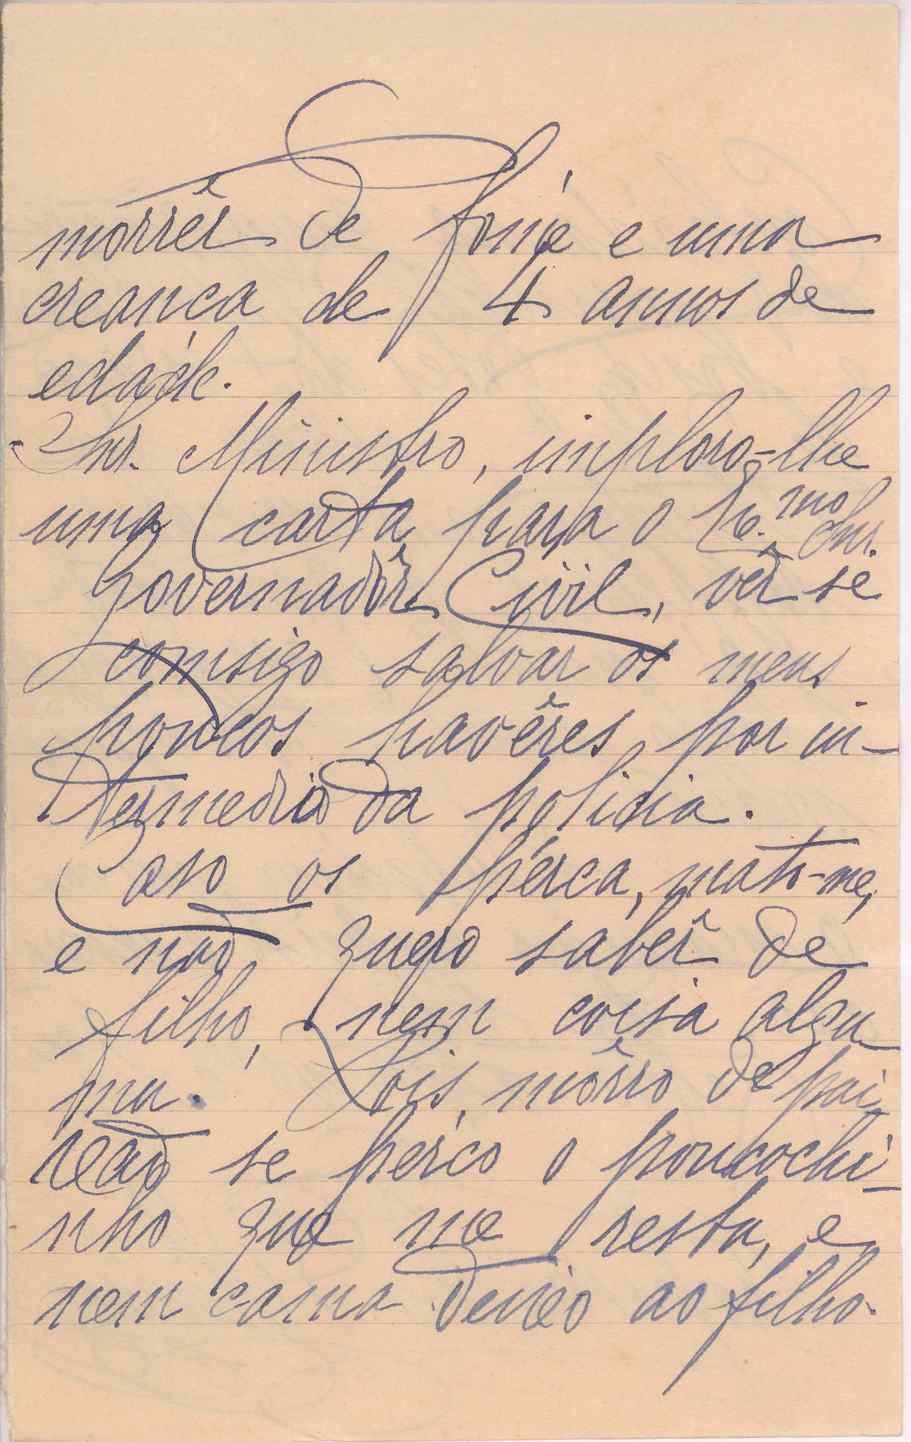 morrêr de fome e uma
creanca de 4 annos de
edade.
Snr. Ministro, imploro-lhe
uma carta para o Ex.mo Snr.
Governadôr Civil, vêr se
comsigo salvar os meus
poucos havêres por in-
termedio da policia.
Caso os pérca, mato-me,
e não quero sabêr de
filho, nem coisa algu
ma! Pois, môrro de pai-
xão se pérco o poucochi-
nho que me resta, e
nem cama deixo ao filho.